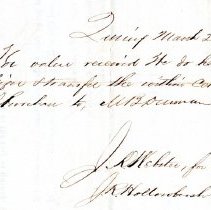 Quincy March 2
For value received We do he
sign & transfer the within Con
to M B Denman
J R Webster for
J K Hollowbush